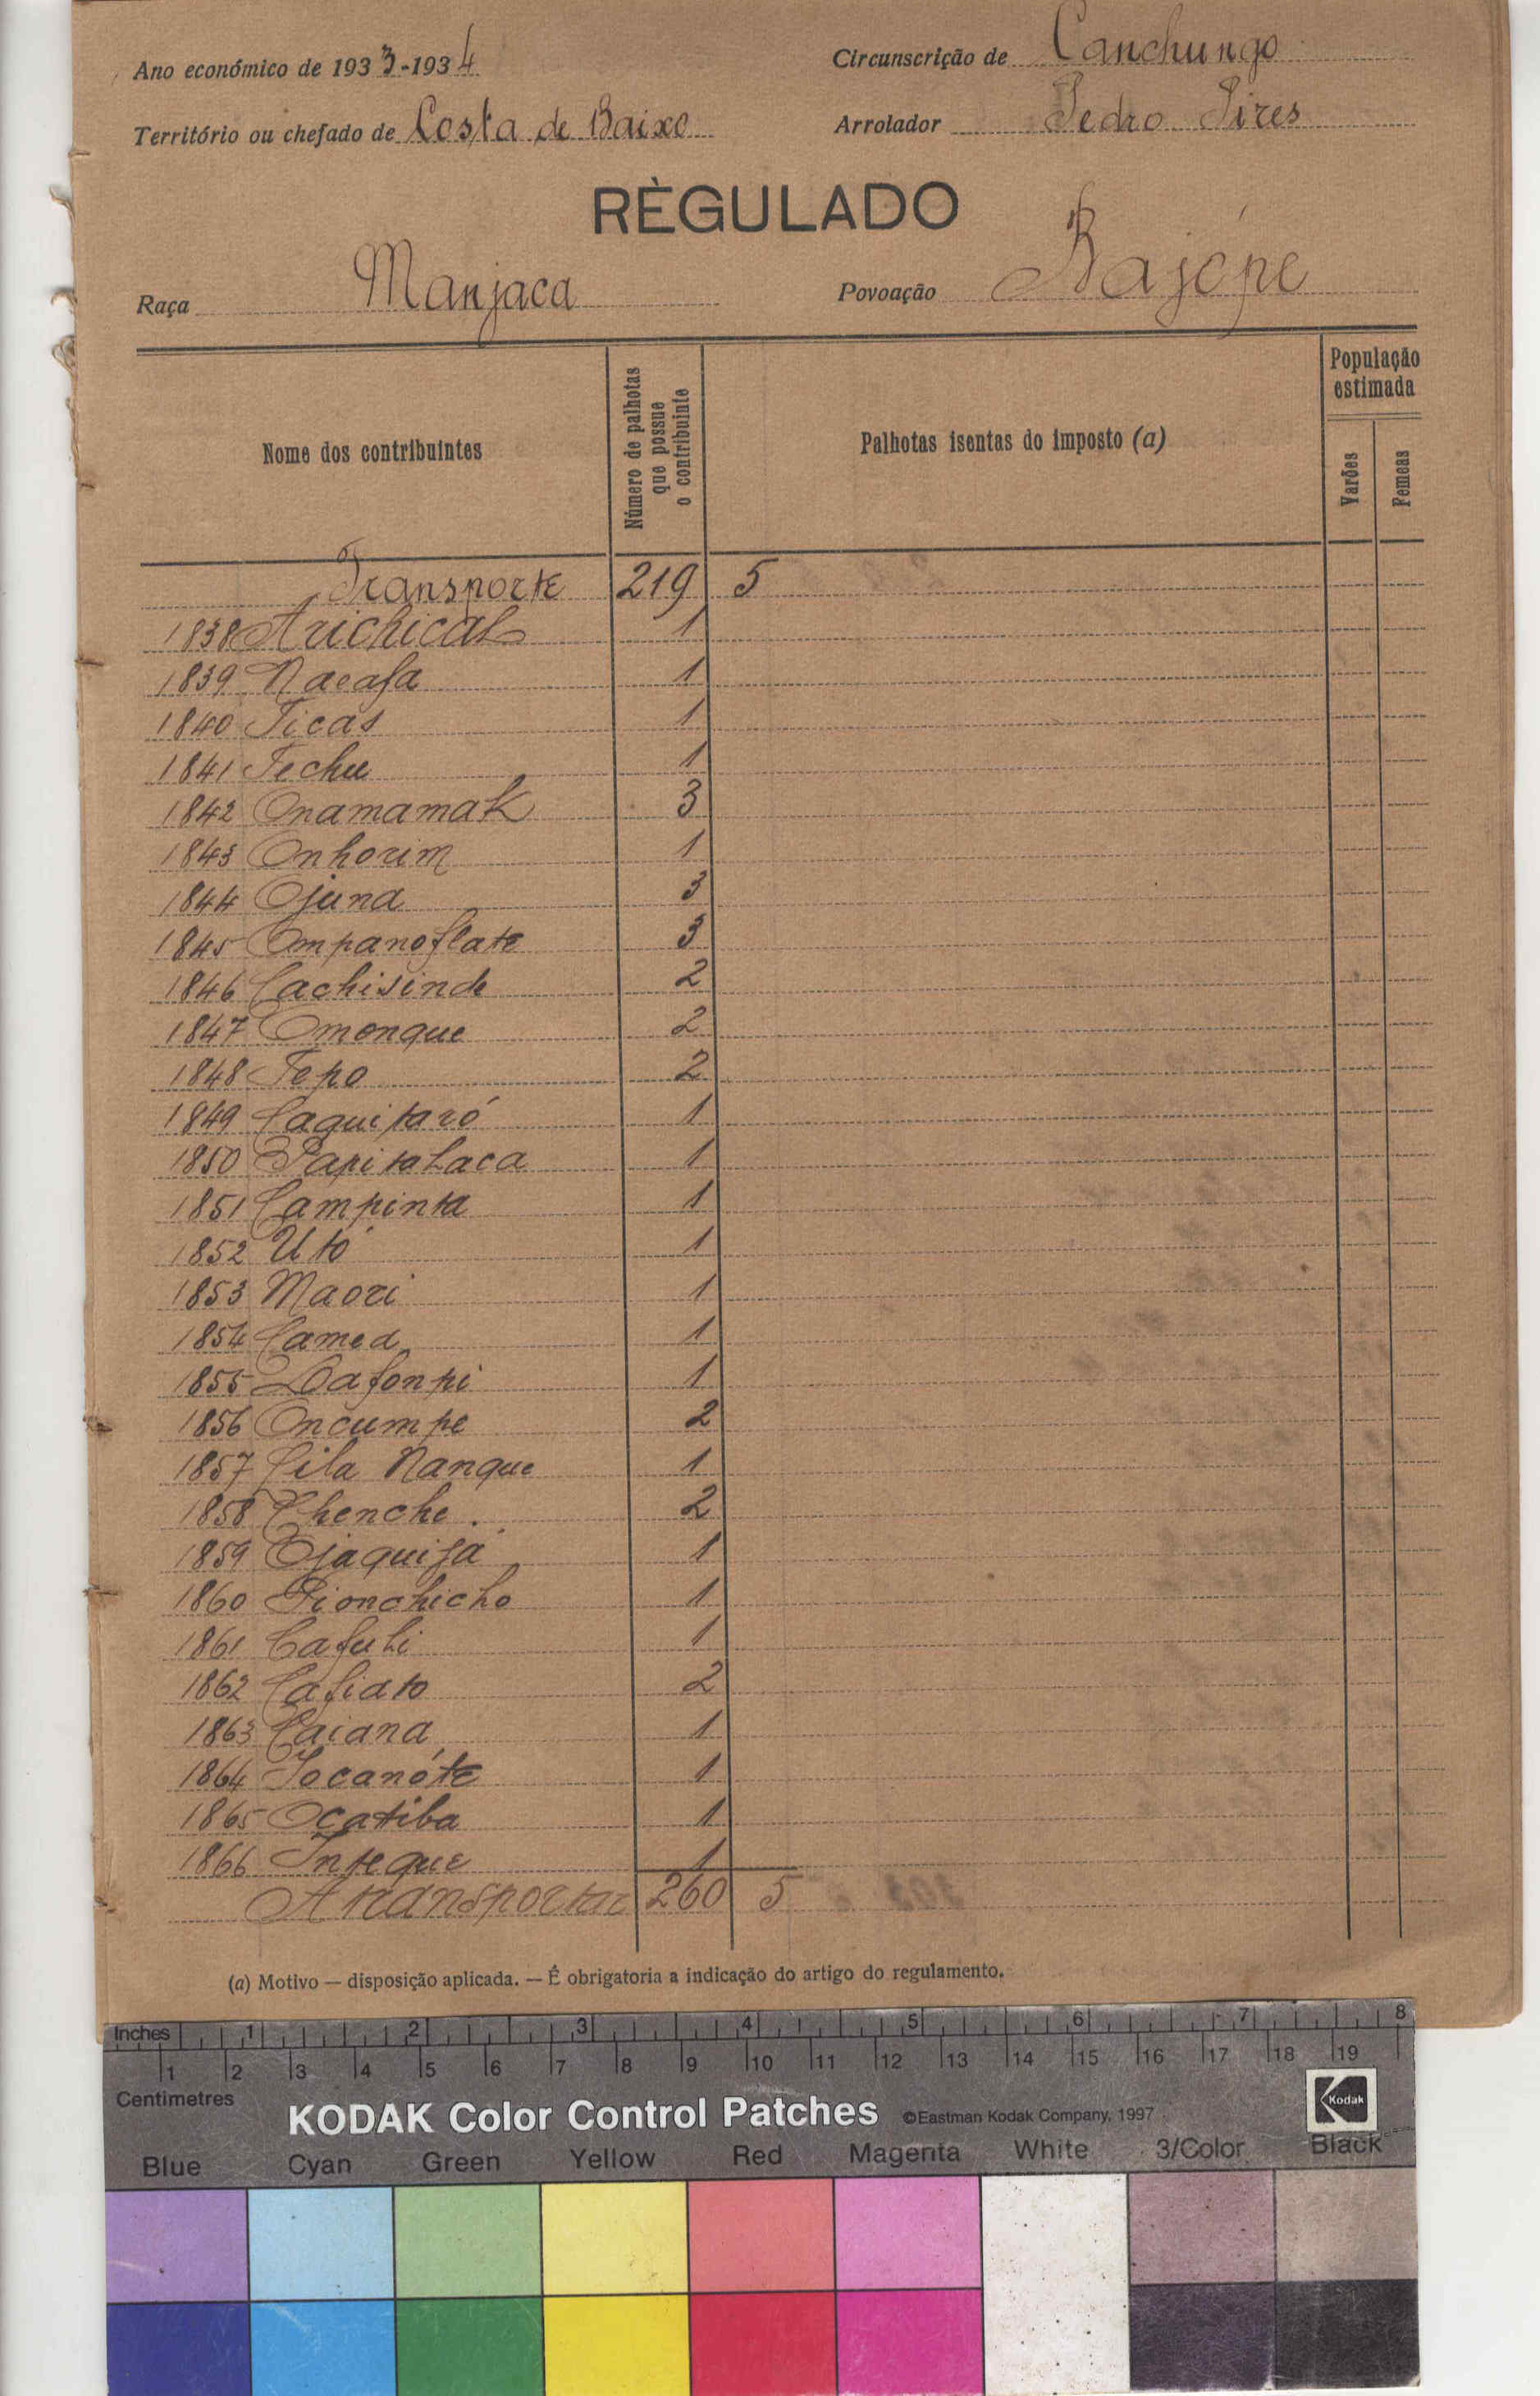 Ano económico de 1933-1934
Circunscrição de Canchungo
Território ou chefado de Costa de Baixo
Arrolador Pedro Pires
RÈGULADO
Raça Manjaca
Povoação Bajópe
Nome dos contribuintes
Número de palhotas que possue o contribuinte
Palhotas isentas do imposto (a)
População estimada
Varões
Femeas
Transporte 219 5
1838 Arichicals 1
1839 Nacafa 1
1840 Ticas 1
1841 Techu 1
1842 Onamamak 3
1843 Onhorim 1
1844 Ojuna 3
1845 Ompanoflate 3
1846 Cachisinde 2
1847 Omonque 2
1848 Tepo 2
1849 Caquitaró 1
1850 Papitalaca 1
1851 Campinta 1
1852 Utó 1
1853 Maori 1
1854 Camed 1
1855 Dafonpi 1
1856 Oncumpe 2
1857 Cila Nanque 1
1858 Chenche. 2
1859 Ojaquifá 1
1860 Pionchicho 1
1861 Cafuli 1
1862 Cafiato 2
1863 Caiana 1
1864 Jocanóte 1
1865 Ocatiba 1
1866 Inteque 1
A transportar 260 5
(a) Motivo — disposição aplicada. — É obrigatoria a indicação do artigo do regulamento.
Inches 1 2 3 4 5 6 7 8
1 2 3 4 5 6 7 8 9 10 11 12 13 14 15 16 17 18 19
Centimetres
KODAK Color Control Patches ©Eastman Kodak Company, 1997 Kodak
Blue Cyan Green Yellow Red Magenta White 3/Color Black